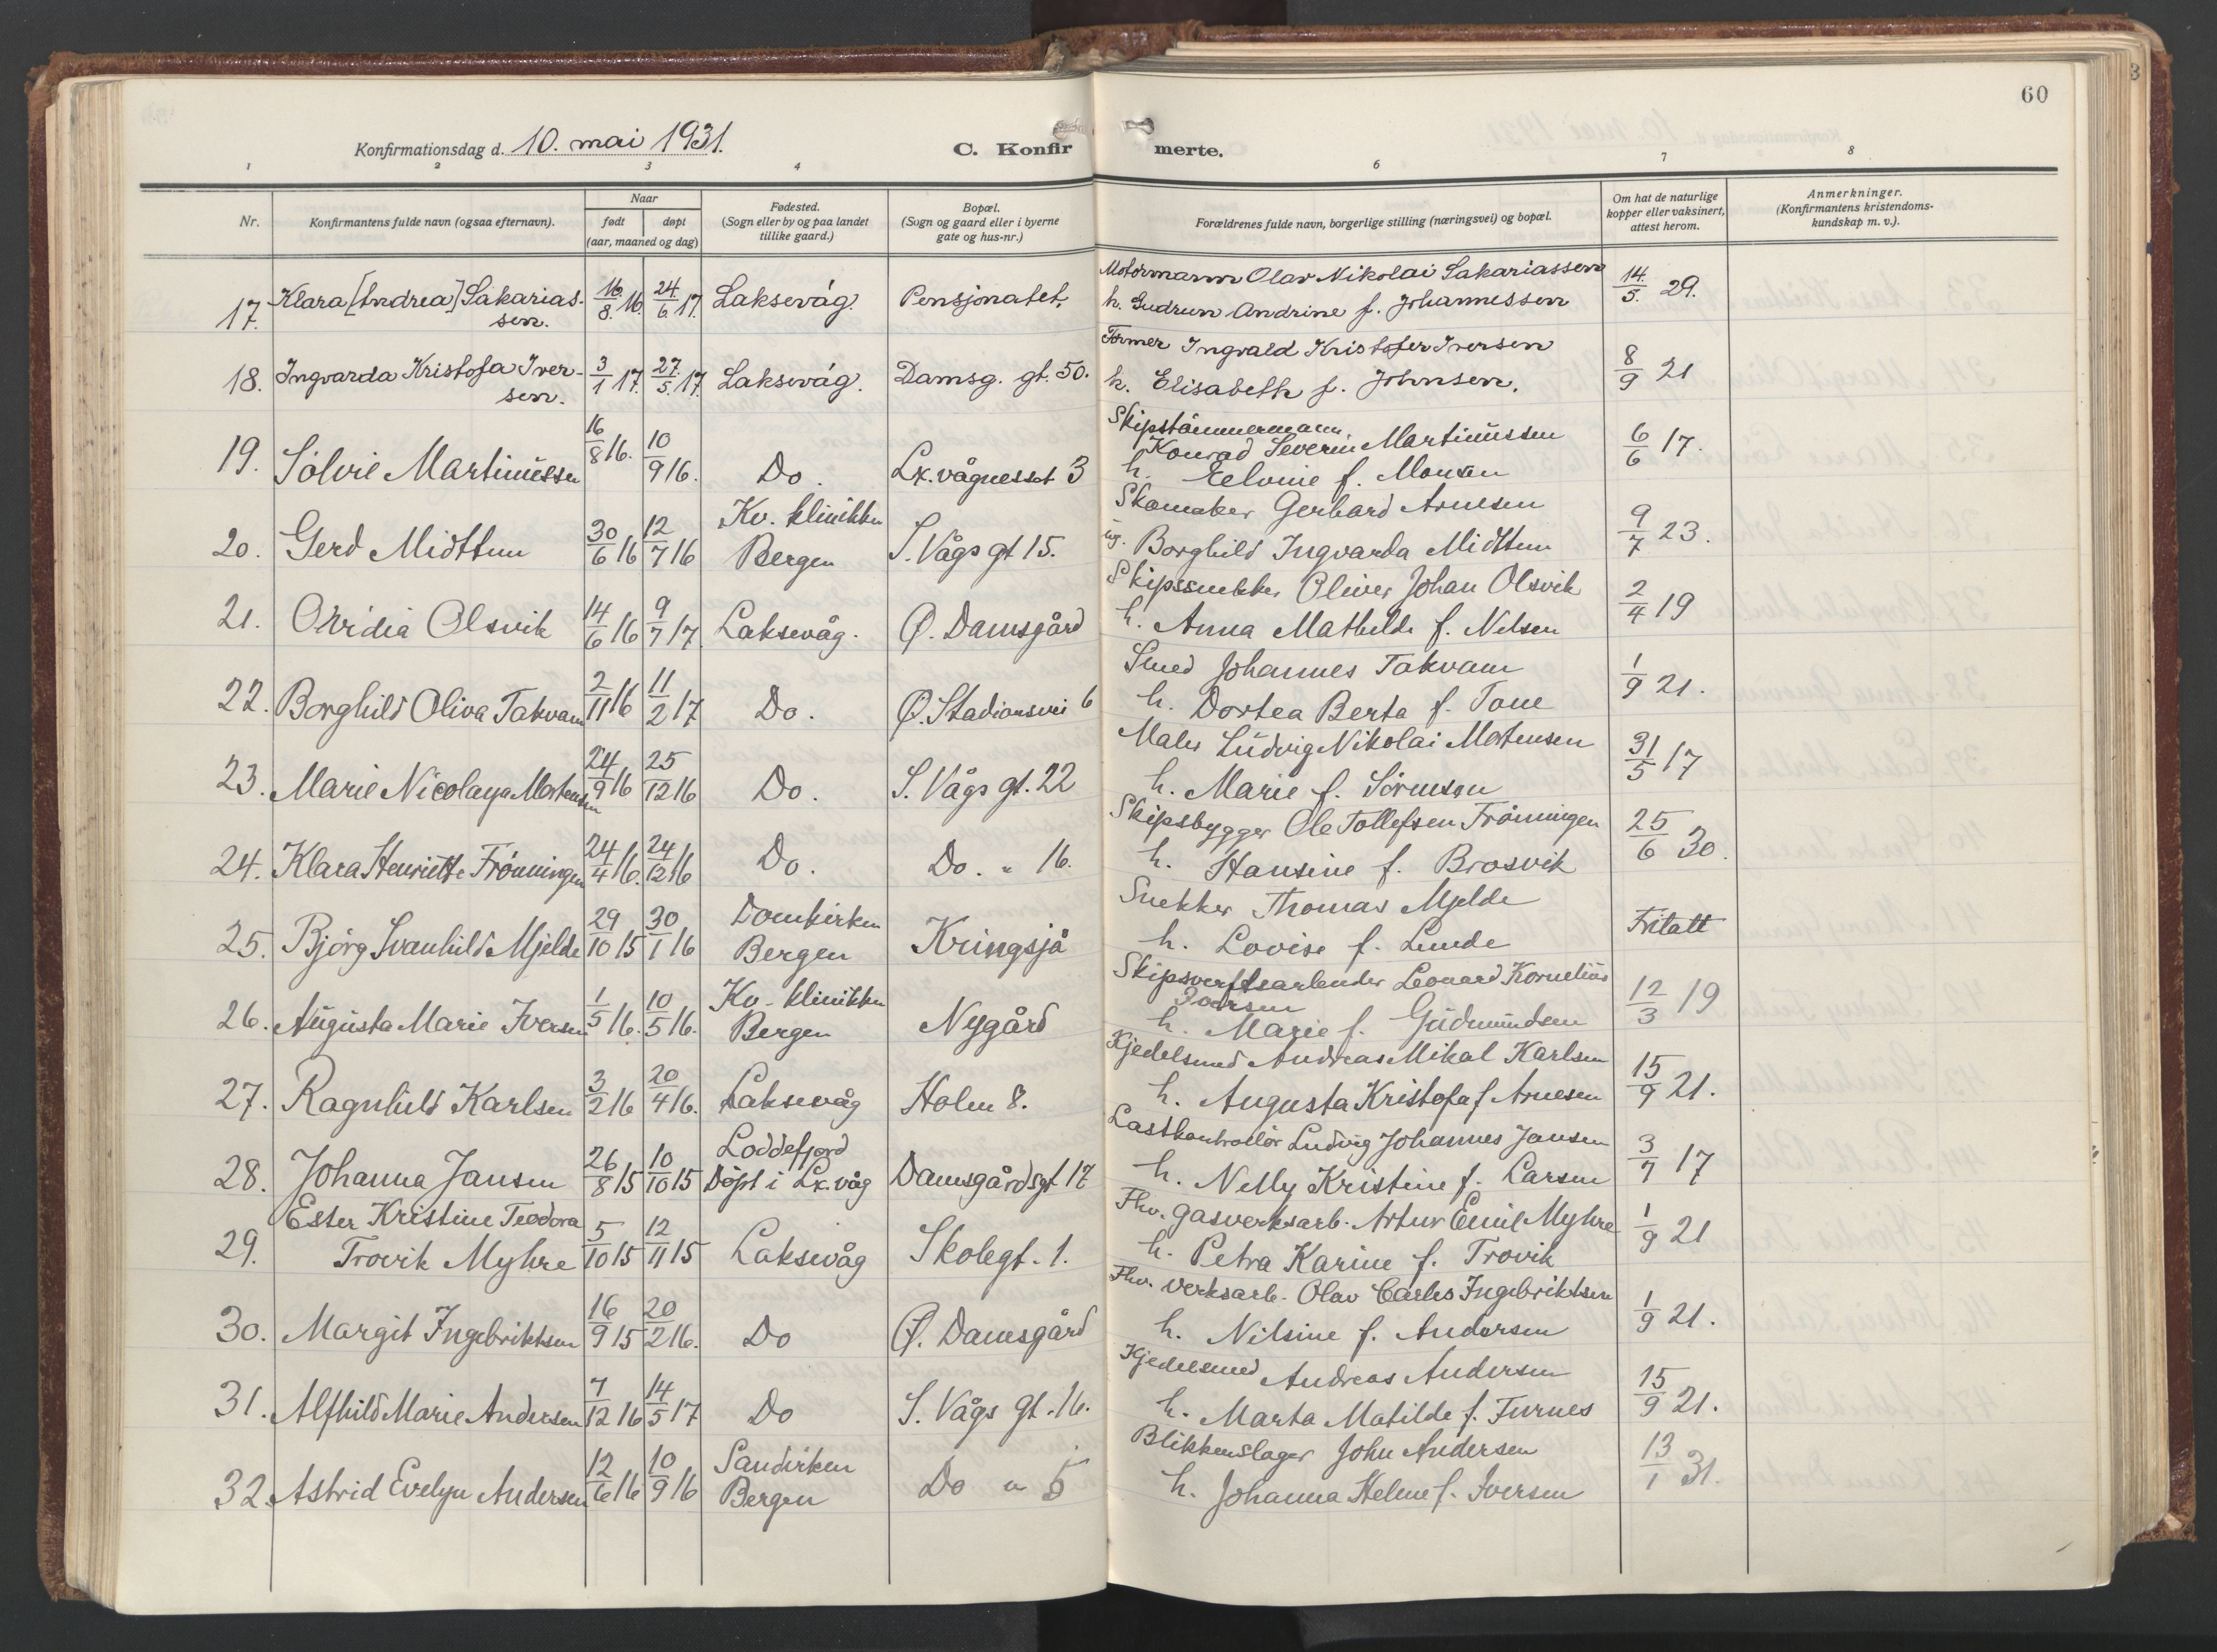 60
Konfirmationsdag d. 10. mai 1931.
C. Konfirmerte.
1 2 3 4 6 7 8
Nr. Konfirmantens fulde navn (ogsaa efternavn). Naar født døpt (aar, maaned og dag) Fødested. (Sogn eller by og paa landet tillike gaard.) Bopæl. (Sogn og gaard eller i byerne gate og hus-nr.) Forældrenes fulde navn, borgerlige stilling (næringsvei) og bopæl. Om hat de naturlige kopper eller vaksinert, attest herom. Anmerkninger. (Konfirmantens kristendoms-kundskap m. v.).
17. Klara [Andrea] Sakarias- 16/8 16. 24/6 17. Laksevåg. Pensjonatet. Motormann Olav Nikolai Sakariassen 14/5. 29.
sen. h. Gudrun Andrine f. Johannessen
18. Ingvarda Kristofa Iver- 3/1 17. 27/5. 17. Laksevåg. Damsg. gt. 50. Former Ingvald Kristofer Iversen 8/9 21
sen. h. Elisabeth f. Johnsen.
19. Solvie Martinussen 16/8 16. 10/9 16. Do. Lx. vågnesset 3 Skipstömmermann 6/6 17.
Konrad Severin Martinussen
h. f. Monsen
20. Gerd Midttun 30/6 16 12/7 16 Kv. klinikken Bergen S. Vågs gt 15. Skomaker Gerhard Arnesen 9/7 23.
ug. Borghild Ingvarda Midttun
21. Ovidia Olsvik 14/6 16 9/7 17. Laksevåg. Ø. Damsgård Skipssnekker Oliver Johan Olsvik 2/4 19
h. Anna Mathilde f. Nilsen
22. Borghild Oliva Takvam 2/11 16 11/2 17 Do. Ø. Stadionsvei 6 Smed Johannes Takvam 1/9 21.
h. Dortea Berta f. Tone
23. Marie Nicolaya Mortensen 24/9 16 25/12 16 Do. S. Vågs gt. 22 Maler Ludvig Nikolai Mortensen 31/5 17
h. Marie f. Sörensen
24. Klara Henriette Frönningen 24/4 16. 24/12 16 Do. Do. " 16. Skipsbygger Ole Tollefsen Frönningen 25/6 30.
h. Hansine f. Brosvik
25. Bjorg Svanhild Mjelde 29/10 15 30/1 16 Domkirken Bergen Kringsjå Snekker Thomas Mjelde Fritatt
h. Lovise f. Lunde
26. Augusta Marie Iversen 1/5 16. 10/5 16. Kv. klinikken Bergen Nygård Skipsverftsarbeider Leonard Kornelius 12/3 19
Iversen
h. Marie f. Gudmundsen
27. Ragnhild Karlsen 3/2 16 20/4 16. Laksevåg Holen 8. Kjedelsmed Andreas Mikal Karlsen 15/9 21.
h. Augusta Kristofa f Arnesen
28. Johanna Jansen 26/8 15 10/10 15 Loddefjord Döpt i Lx. våg Damsgårdsgt 17 Lastkontrollör Ludvig Johannes Jansen 3/7 17
h. Nelly Kristine f. Larsen
29. Ester Kristine Teodora 5/10 15 12/11 15 Laksevåg Skolegt. 1. Fhv. gasverksarb. Artur Emil Myhre 1/9 21
Trovik Myhre h. Petra Karine f. Trovik
30. Margit Ingebriktsen 16/9 15 20/2 16. Do Ø. Damsgård Fhv. verksarb. Olav Carlus Ingebriktsen 1/9 21.
h. Nilsine f. Andersen
31. Alfhild Marie Andersen 7/12 16 14/5 17 Do S. Vågs gt. 16. Kjedelsmed Andreas Andersen 15/9 21.
h. Marta Matilde f. Furnes
32. Astrid Evelyn Andersen 12/6 16 10/9 16 Sandvirken Bergen Do " 5 Blikkenslager John Andersen 13/1 31.
h. Johanna Helene f. Iversen